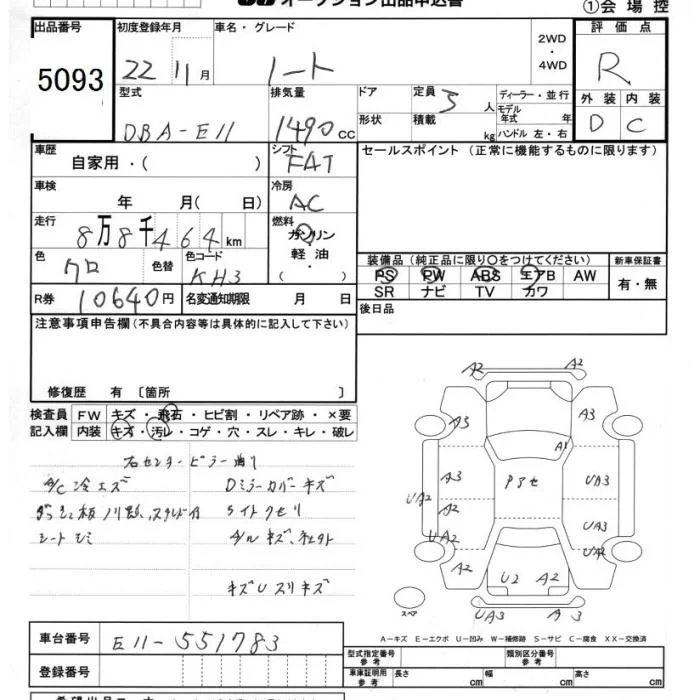 オークション出品申込書
①会場控
出品番号 初度登録年月 車名・グレード 評価点
5093 22 11月 ノート 2WD・4WD R
型式 排気量 ドア 定員 5人 ディーラー・並行 外装 内装
DBA-E11 1490cc 形状 積載 kg モデル年式 年 D C
ハンドル 左・右
車歴 シフト セールスポイント (正常に機能するものに限ります)
自家用・( ) FAT
車検 冷房
年 月( 日) AC
走行 燃料
8万8千464km ガソリン・軽油・
色 色替 色コード 装備品(純正品に限り○をつけてください) 新車保証書
クロ KH3 PS PW ABS エアB AW 有・無
SR ナビ TV カワ
R券 10640円 名変通知期限 月 日
後日品
注意事項申告欄(不具合内容等は具体的に記入して下さい)
修復歴 有〔箇所 〕
検査員 FW キズ・飛石・ヒビ割・リペア跡・×要
記入欄 内装 キズ・汚レ・コゲ・穴・スレ・キレ・破レ
右センターピラー
A/C冷エズ Dミラーカバーキズ
ライトクモリ
シートシミ
キズUスリキズ
A2 A2
A3 A3
A1
A3 UA3
UA2 A2 UA3
UA2 UA2
A2 U2 A2
UA3 A3
スペア
A-キズ E-エクボ U-凹み W-補修跡 S-サビ C-腐食 XX-交換済
車台番号 E11-551783
登録番号
型式指定番号 参考 類別区分番号 参考
車庫証明用 参考 長さ cm 幅 cm 高さ cm